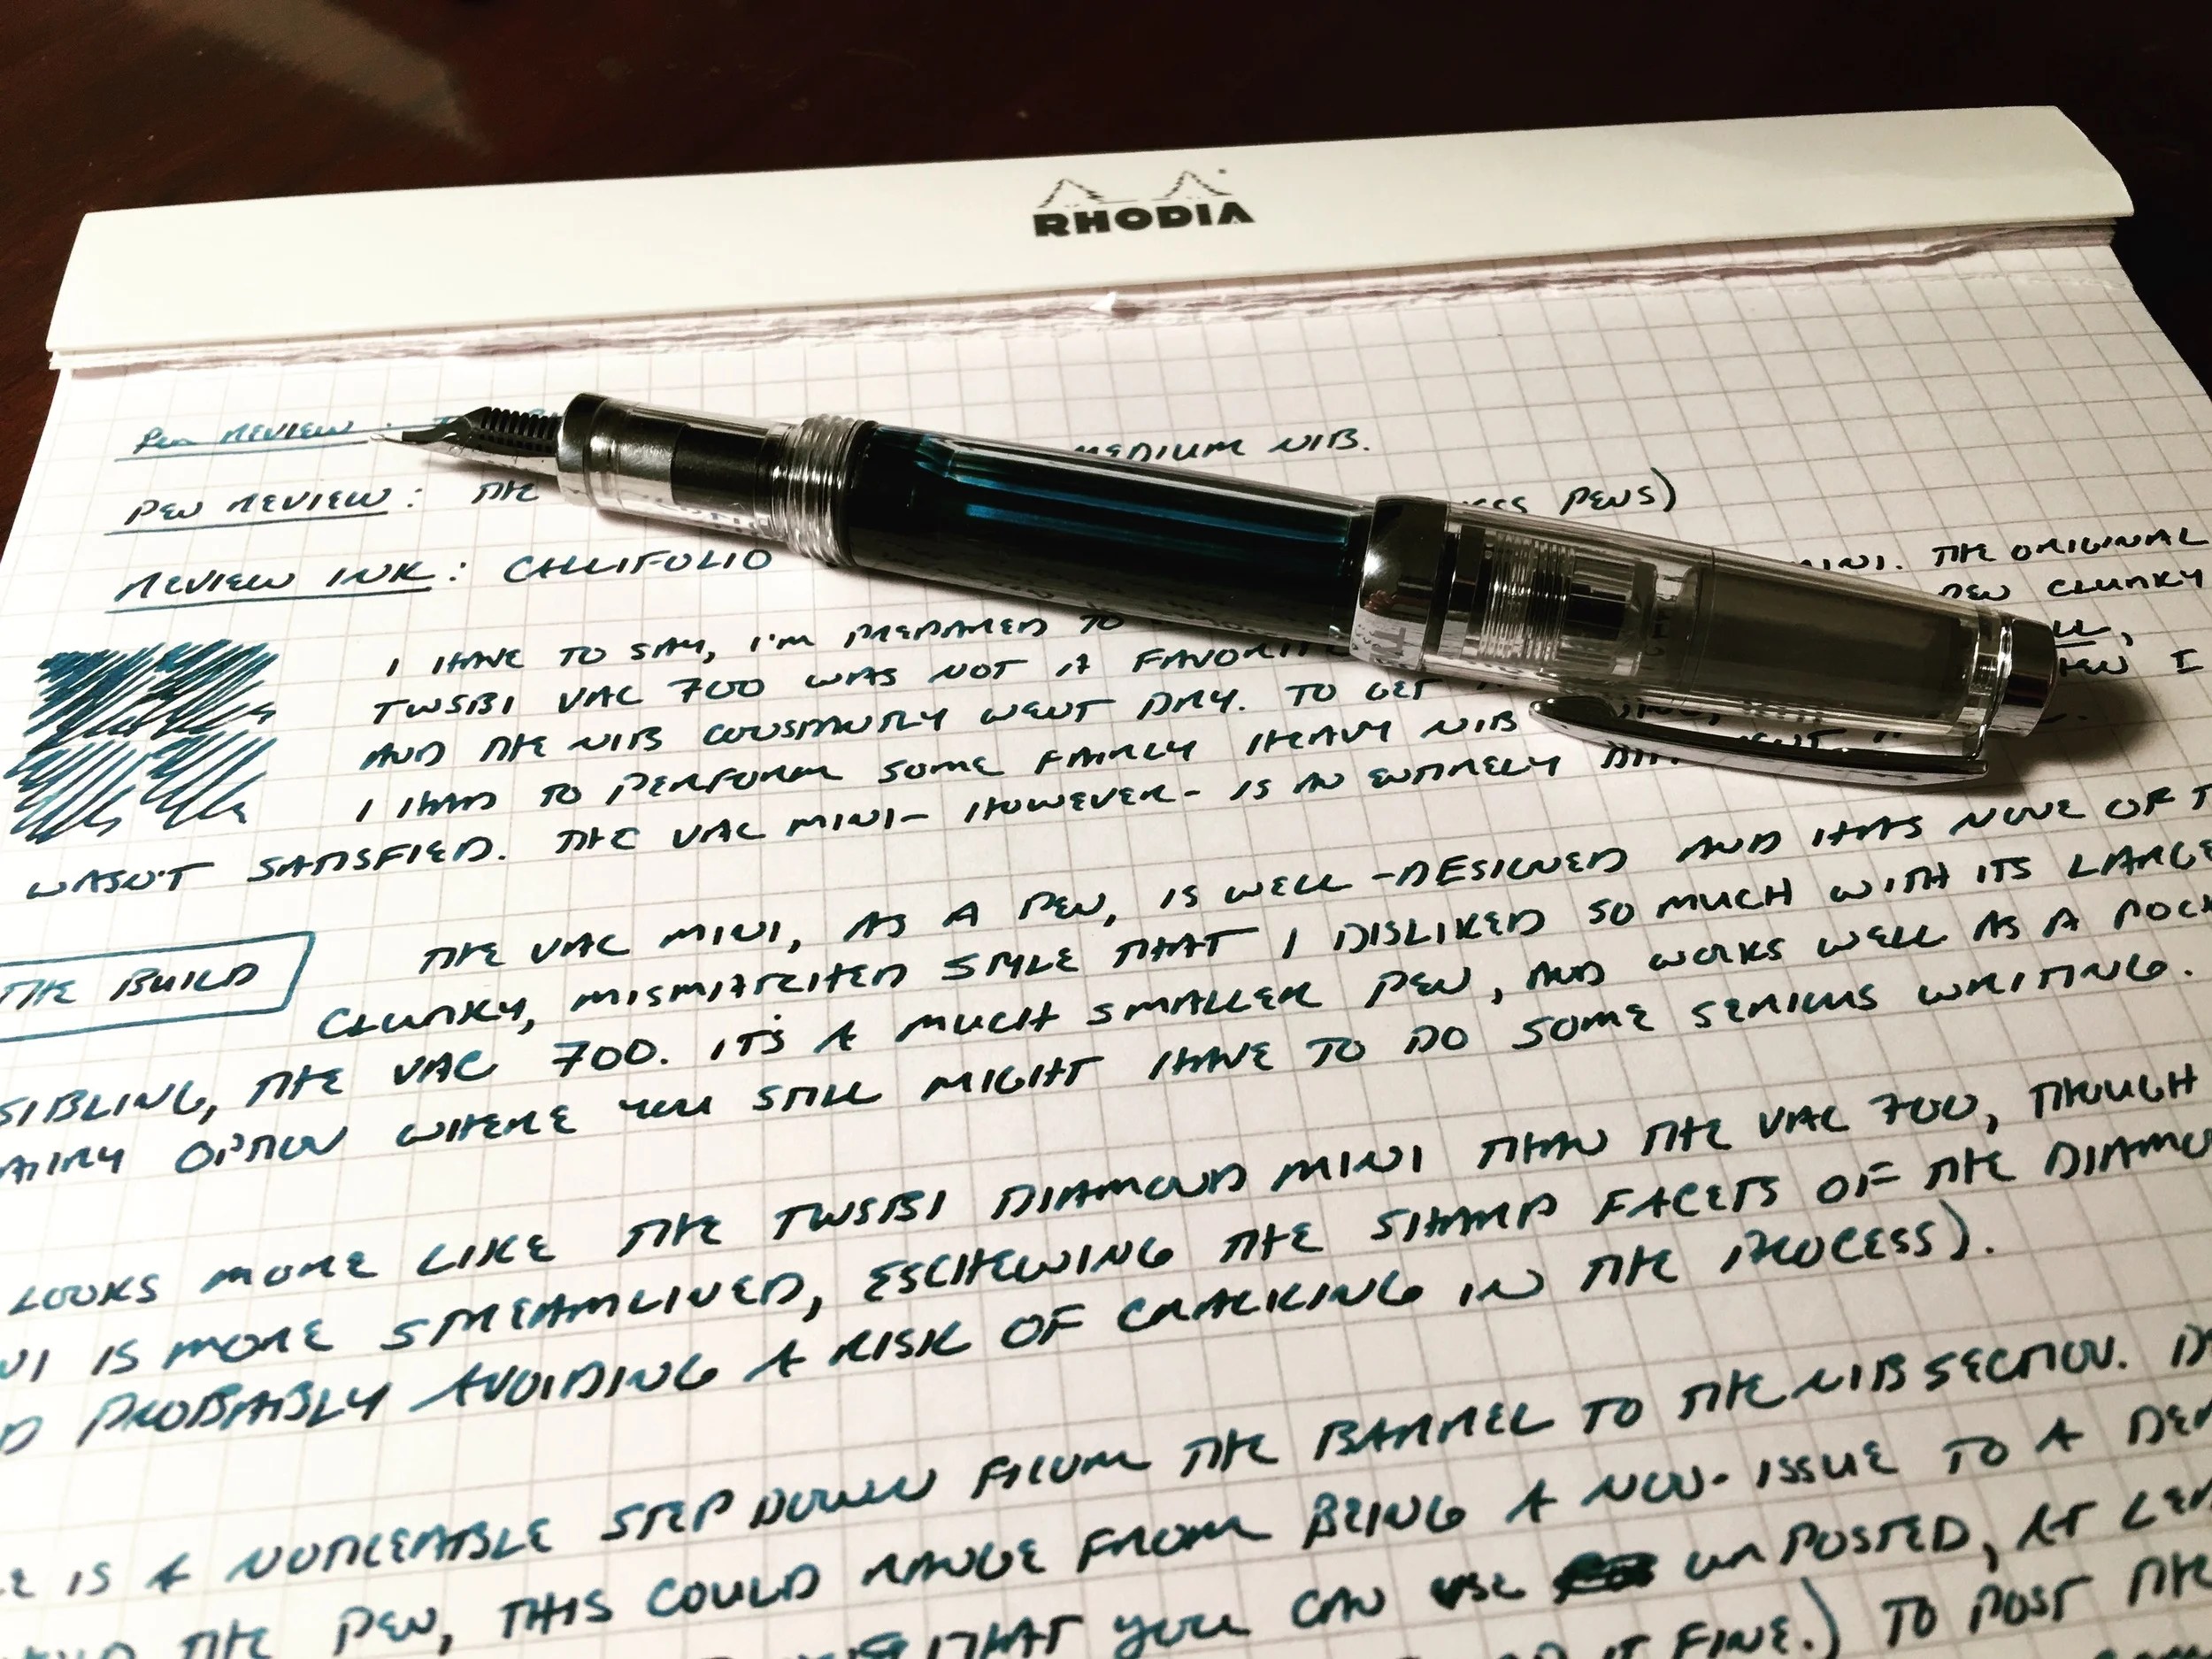 RHODIA
PEN REVIEW: MEDIUM NIB.
PEN REVIEW: THE PENS)
REVIEW INK: CALLIFOLIO
I HAVE TO SAY, I'M PREPARED TO MINI. THE ORIGINAL
TWSBI VAC 700 WAS NOT A FAVORITE PEN CLUNKY
AND THE NIB CONSTANTLY WENT DRY. TO GET
I HAD TO PERFORM SOME FAIRLY HEAVY NIB I
WASN'T SATISFIED. THE VAC MINI- HOWEVER- IS AN ENTIRELY
THE BUILD
THE VAC MINI, AS A PEN, IS WELL-DESIGNED AND HAS NONE OF
CLUNKY, MISMATCHED STYLE THAT I DISLIKED SO MUCH WITH ITS LARGE
SIBLING, THE VAC 700. IT'S A MUCH SMALLER PEN, AND WORKS WELL AS A POCK
OPTION WHERE YOU STILL MIGHT HAVE TO DO SOME SERIOUS WRITING.
LOOKS MORE LIKE THE TWSBI DIAMOND MINI THAN THE VAC 700, THOUGH
NI IS MORE STREAMLINED, ESCHEWING THE SHARP FACETS OF THE DIAMO
D PROBABLY AVOIDING A RISK OF CRACKING IN THE PROCESS).
E IS A NOTICEABLE STEP DOWN FROM THE BARREL TO THE NIB SECTION.
THE PEN, THIS COULD RANGE FROM BEING A NON-ISSUE TO A
THAT YOU CAN USE UNPOSTED, AT
IT FINE.) TO POST THE